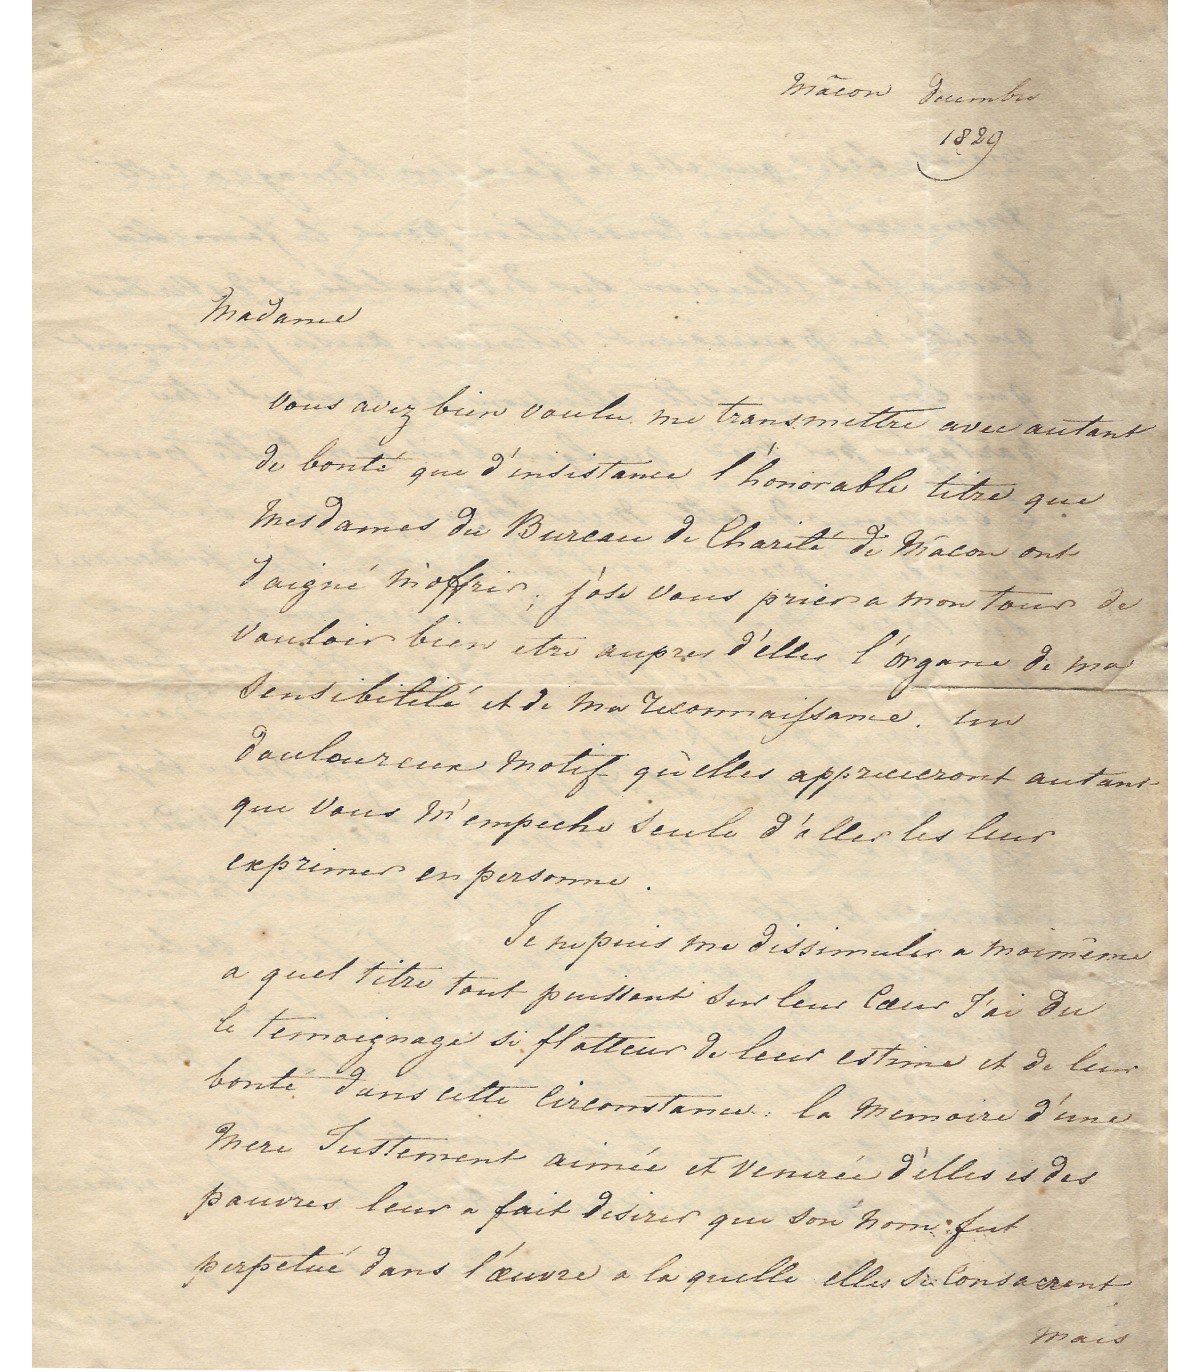 Mâcon decembre
1829
Madame
vous avez bien voulu me transmettre avec autant
de bonté que d'insistance l'honorable titre que
Mesdames du Bureau de Charité de Mâcon ont
daigné m'offrir; j'ose vous prier a mon tour de
vouloir bien etre aupres d'elles l'organe de ma
sensibilité et de ma reconnaissance. un
douloureux motif qu'elles apprecieront autant
que vous m'empeche seule d'aller les leur
exprimer en personne.
Je ne puis me dissimuler a moimême
a quel titre tout puissant sur leur coeur J'ai du
le temoignage si flatteur de leur estime et de leur
bonté dans cette circonstance: la memoire d'une
mere Justement aimée et venerée d'elles et des
pauvres leur a fait desirer que son nom fut
perpetué dans l'œuvre a la quelle elles se consacrent
mais